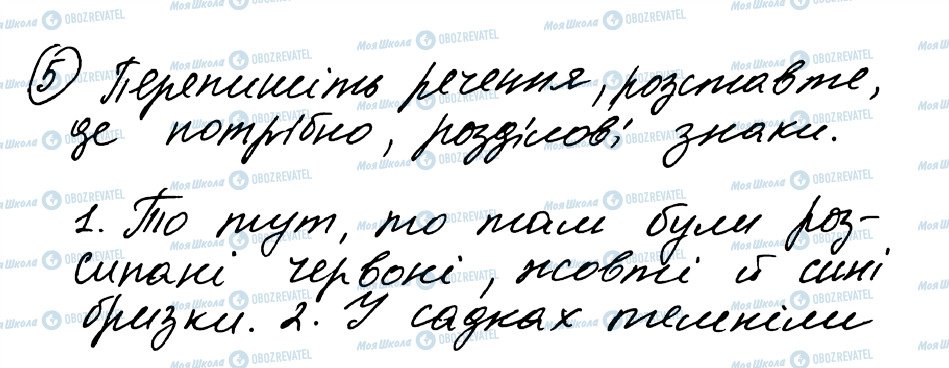 5 Перепишіть речення, розставте,
де потрібно, розділові знаки.
1. То тут, то там були роз-
сипані червоні, жовті й сині
бризки. 2. У садках темніли